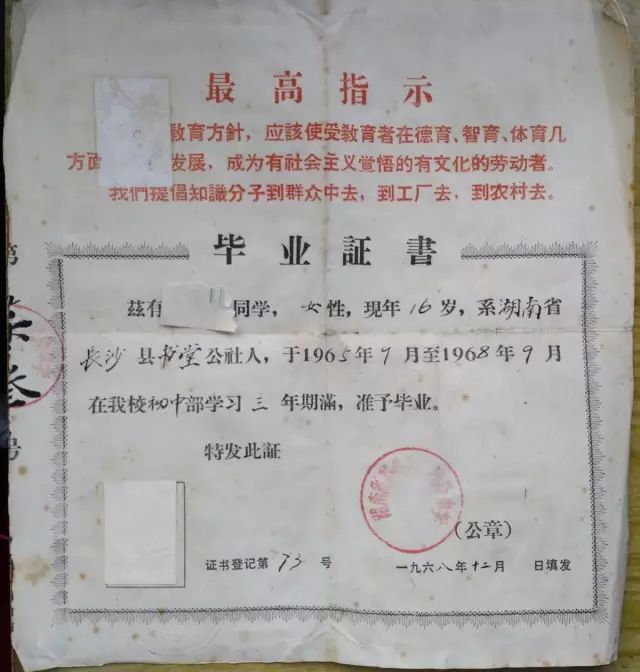 最高指示
教育方針，应該使受教育者在德育、智育、体育几
方面 发展，成为有社会主义覚悟的有文化的劳动者。
我們提倡知識分子到群众中去，到工厂去，到农村去。
毕业証書
茲有 同学，女性，現年16岁，系湖南省
長沙县书堂公社人，于1965年9月至1968年9月
在我校初中部学习三年期滿，准予毕业。
特发此証
（公章）
证书登记第73号
一九六八年十二月 日填发
第
号